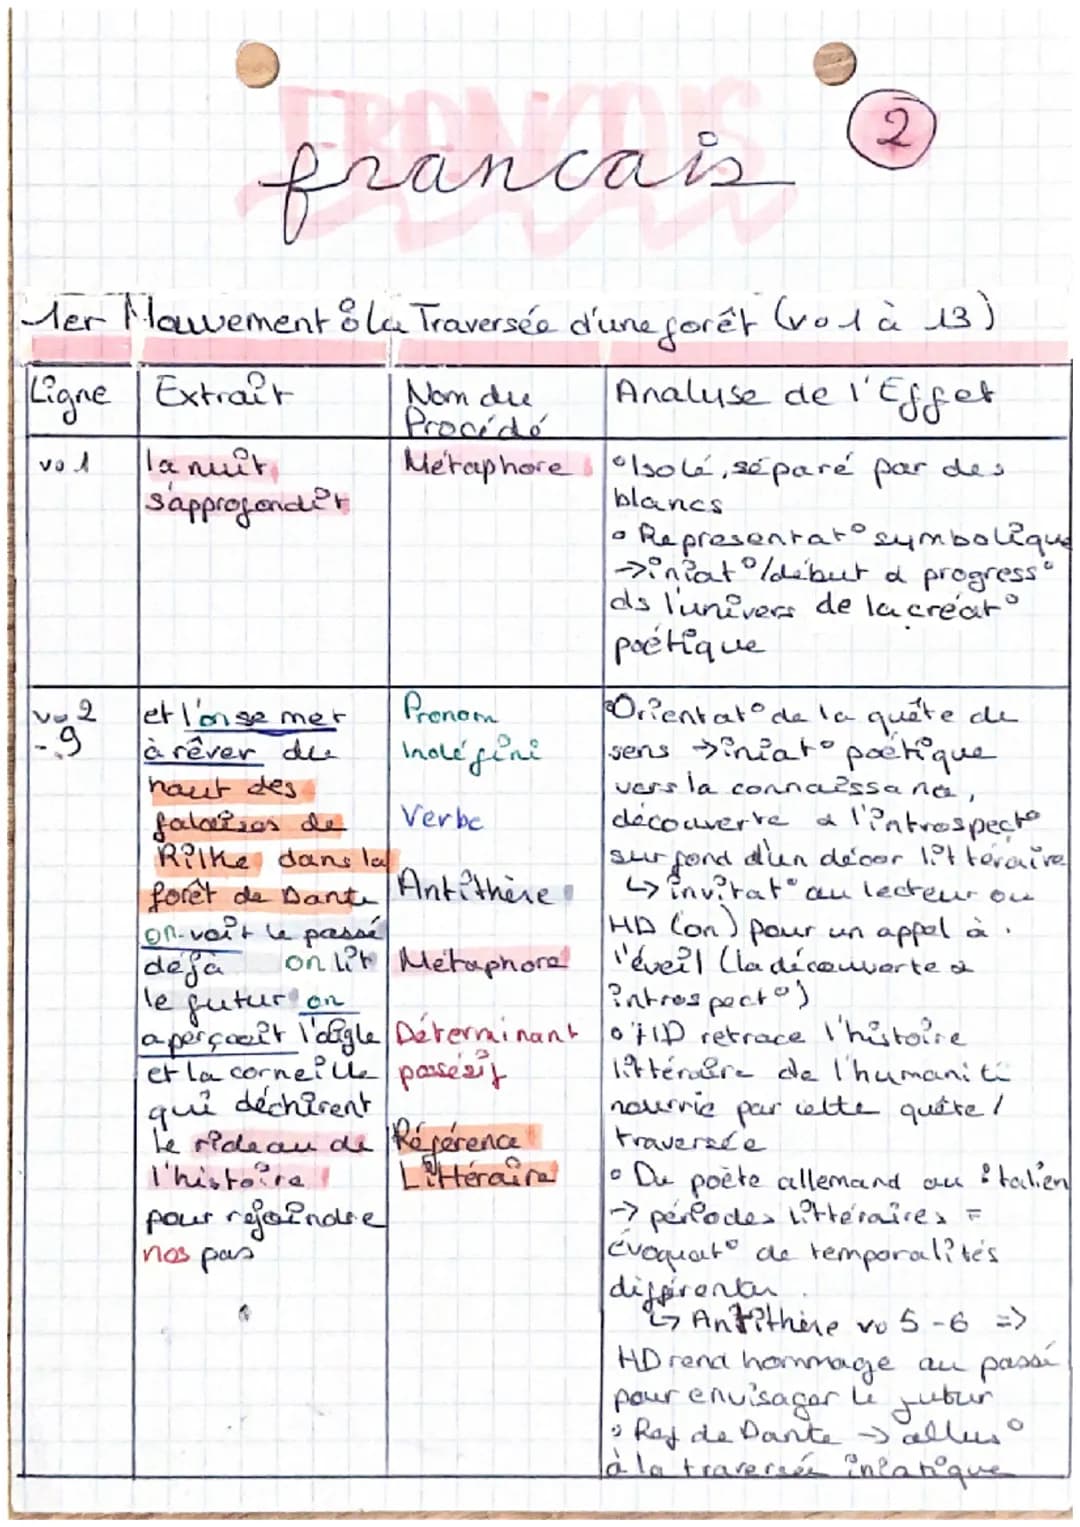 FRANCAIS
francais
2
1er Mouvement : la Traversée d'une forêt (vo 1 à 13)
Ligne
Extrait
Nom du
Procédé
Analyse de l'Effet
vo 1
la nuit
s'approfondit
Métaphore
° Isolé, séparé par des
blancs
° Representat° symbolique
→ iniat°/début d progress°
ds l'univers de la créat°
poétique
vo 2
- 9
et l'on se met
à rêver du
haut des
falaises de
Rilke dans la
forêt de Dante
on voit le passé
déjà on lit
le futur on
aperçoit l'aigle
et la corneille
qui déchirent
le rideau de
l'histoire
pour rejoindre
nos pas
Pronom
Indéfini
Verbe
Antithèse
Métaphore
Déterminant
possésif
Référence
Littéraire
° Orientat° de la quête de
sens → iniat° poétique
vers la connaissance,
découverte d l'introspect°
sur fond d'un décor littéraire
↳ invitat° au lecteur ou
HD (on) pour un appel à
l'éveil (la découverte d
introspect°)
° HD retrace l'histoire
littéraire de l'humanité
nourrie par cette quête /
traversée
° Du poète allemand au italien
→ périodes littéraires =
évoquat° de temporalités
différentes
↳ Antithèse vo 5-6 =>
HD rend hommage au passé
pour envisager le futur
° Ref de Dante → allus°
à la traversée iniatique